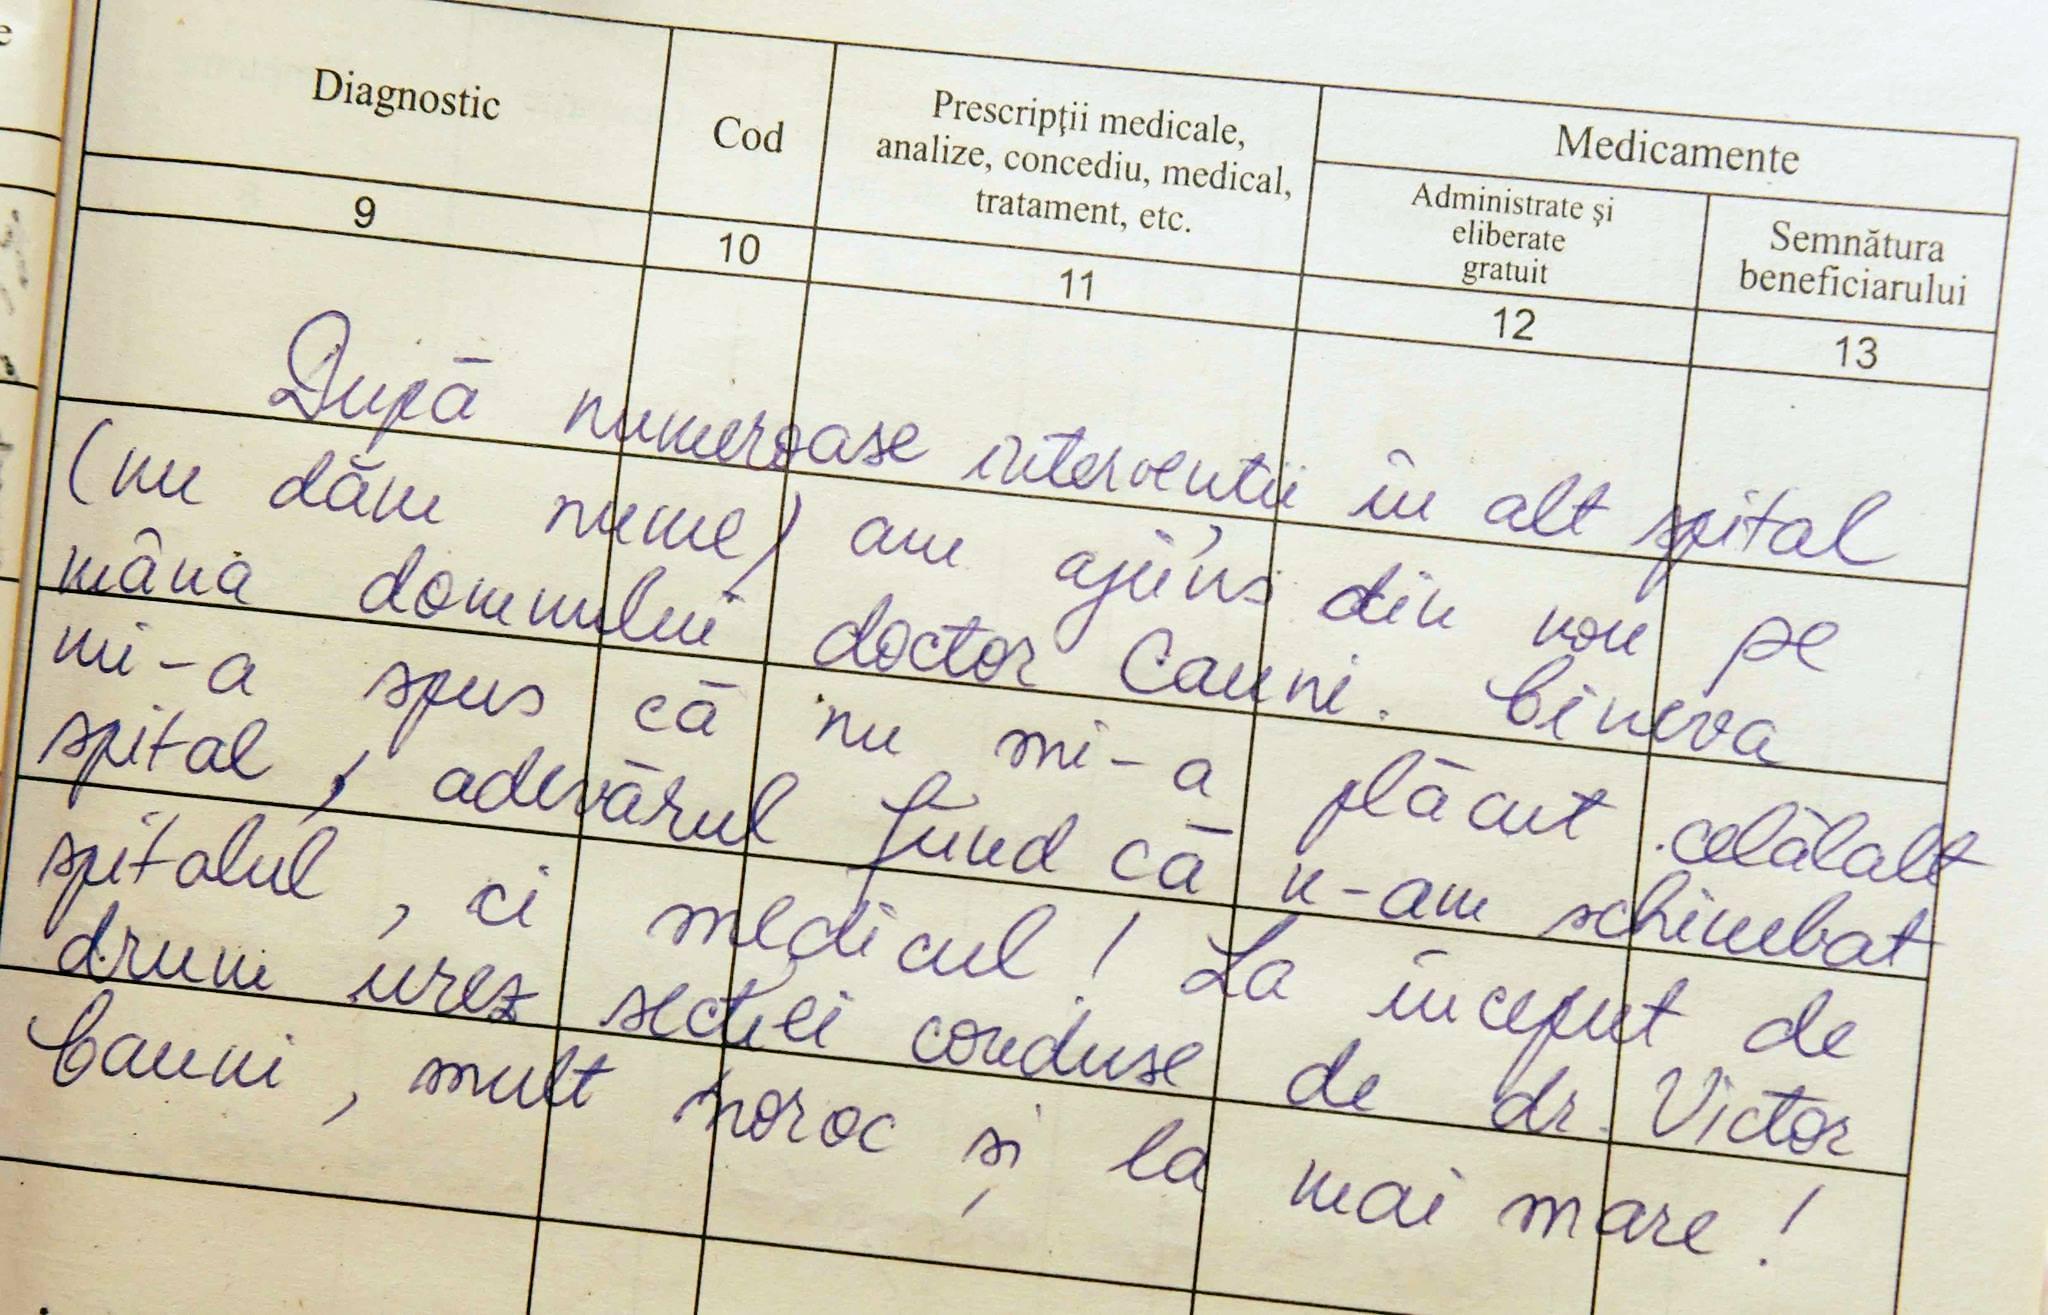 Diagnostic
Cod
Prescripţii medicale,
analize, concediu, medical,
tratament, etc.
Medicamente
Administrate şi
eliberate
gratuit
Semnătura
beneficiarului
9
10
11
12
13
După numeroase intervenții în alt spital
(nu dăm nume) am ajuns din nou pe
mâna domnului doctor Cauni. Cineva
mi-a spus că nu mi-a plăcut celălalt
spital, adevărul fiind că n-am schimbat
spitalul, ci medicul! La început de
drum urez secției conduse de dr. Victor
Cauni, mult noroc și la mai mare!